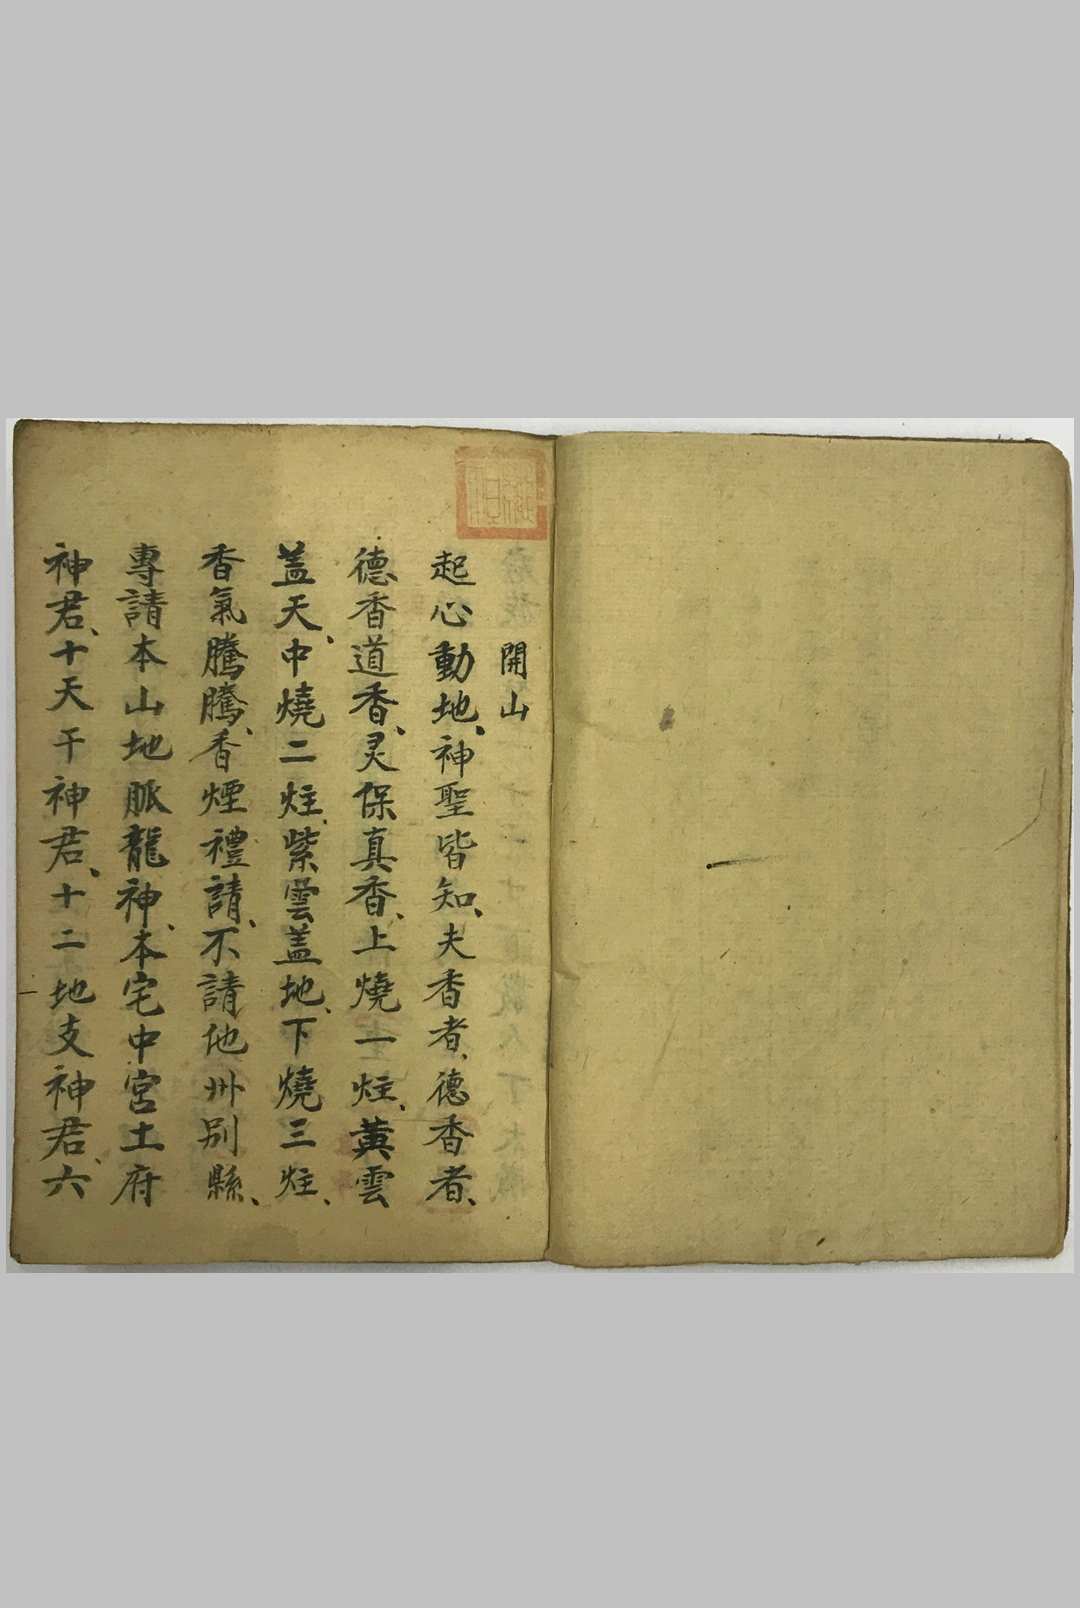 開山
起心動地、神聖皆知、夫香者、德香者、
德香道香、灵保真香、上燒一炷、黄雲
盖天、中燒二炷、紫雲盖地、下燒三炷、
香氣騰騰、香煙禮請、不請他州別縣、
專請本山地脈龍神、本宅中宮土府
神君、十天干神君、十二地支神君、六